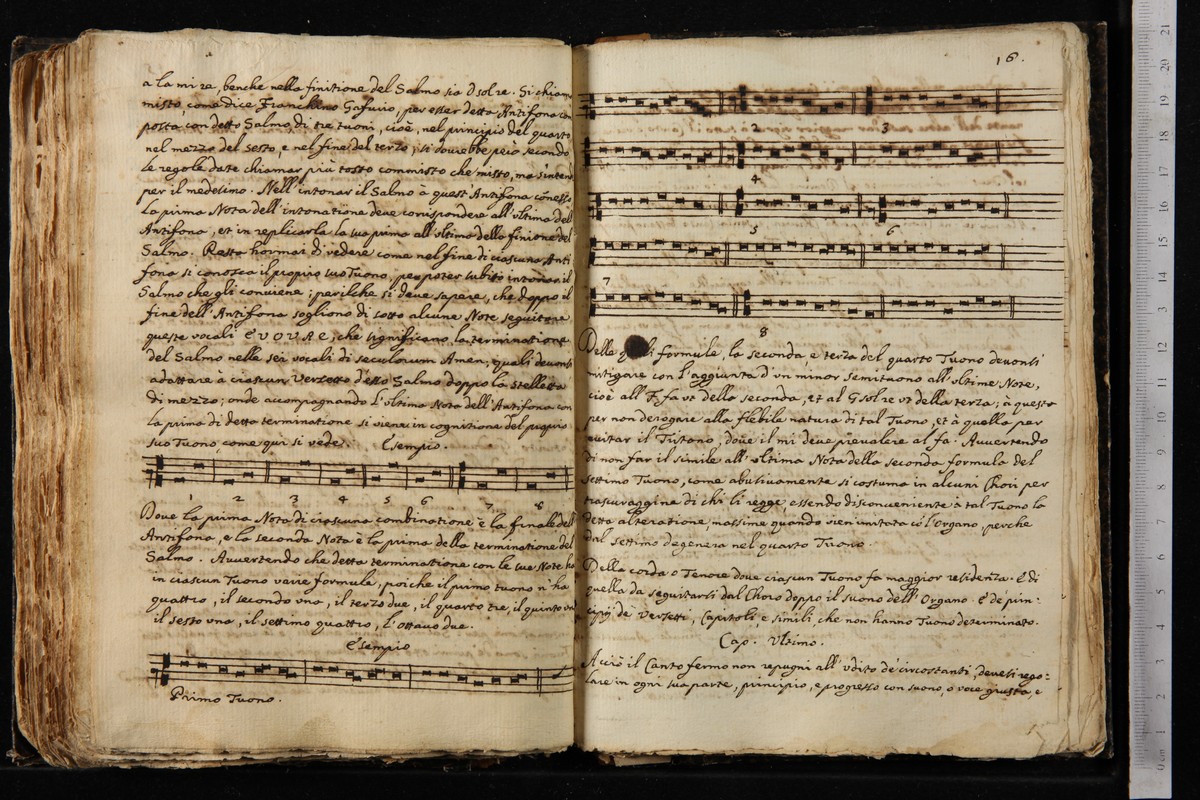 a la mi re, benche nella finitione del Salmo sia D sol re. Si chiam
misto, come dice Franchino Gafurio, per esser detta Antifona com
posta con detto Salmo di tre tuoni, cioè, nel principio del quarto
nel mezzo del sesto, e nel fine del terzo, si dovrebbe però secondo
le regole date chiamar più tosto commisto che misto, ma s'inten
per il medesimo. Nell'intonar il Salmo à quest'Antifona
la prima Nota dell'intonatione deve corispondere all'ultima del
Antifona, et in replicarla la sua prima all'ultima della finione del
Salmo. Resta hormai di vedere come nel fine di ciascuna Anti
fona si conosca il proprio suo Tuono, per poter subito intonar il
Salmo che gli conviene; perilche si deve sapere, che doppo il
fine dell'Antifona sogliono di sotto alcune Note seguitare
queste vocali E V O V A E, che significano la terminatione
del Salmo nelle sei vocali di seculorum Amen; quali devonsi
adattare à ciascun Verzetto d'esso Salmo doppo la stelletta
di mezzo; onde accompagnando l'ultima Nota dell'Antifona con
la prima di detta terminatione si viene in cognitione del proprio
suo Tuono, come qui si vede. Esempio.
1 2 3 4 5 6 7 8
Dove la prima Nota di ciascuna combinatione è la finale dell
Antifona, e la seconda Nota è la prima della terminatione del
Salmo. Avvertendo che detta terminatione con le sue Note ha
in ciascun Tuono varie formule, poiche il primo tuono n'ha
quattro, il secondo una, il terzo due, il quarto tre, il quinto una
il sesto una, il settimo quattro, l'ottavo due.
Esempio
Primo Tuono.
16.
2 3
4
5 6
7
8
Delle quali formule, la seconda, e terza del quarto Tuono devonsi
mitigare con l'aggiunta d'un minor semituono all'ultime Note,
cioè all'F fa ut della seconda, et al G sol re ut della terza; à questo
per non derogare alla flebile natura di tal Tuono, et à quella per
evitar il Tritono, dove il mi deve prevalere al fa. Avvertendo
di non far il simile all'ultima Nota della seconda formula del
settimo Tuono, come abusivamente si costuma in alcuni Chori per
trascuraggine di chi li regge, essendo disconveniente à tal Tuono la
detta alteratione, massime quando vien usitata cō l'Organo, perche
dal settimo degenera nel quarto Tuono.
Della corda o Tenore dove ciascun Tuono fa maggior residenza. E di
quella da seguitarsi dal Choro doppo il suono dell'Organo. E de prin-
cipij de Versetti, Capitoli, e simili, che non hanno Tuono determinato.
Cap. Ultimo.
Acciò il Canto fermo non repugni all'udito de' circostanti, devesi rego-
lare in ogni sua parte, principio, e progresso con suono, o voce giusta, e